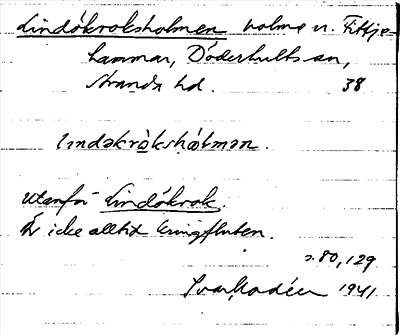 Lindökroksholmen holme n. Fittje-
hammar, Döderhults sn,
Stranda hd. 38
lındəkròkshòlmən.
Utanför Lindökrok.
Är icke alltid kringfluten.
s. 80, 129
1941